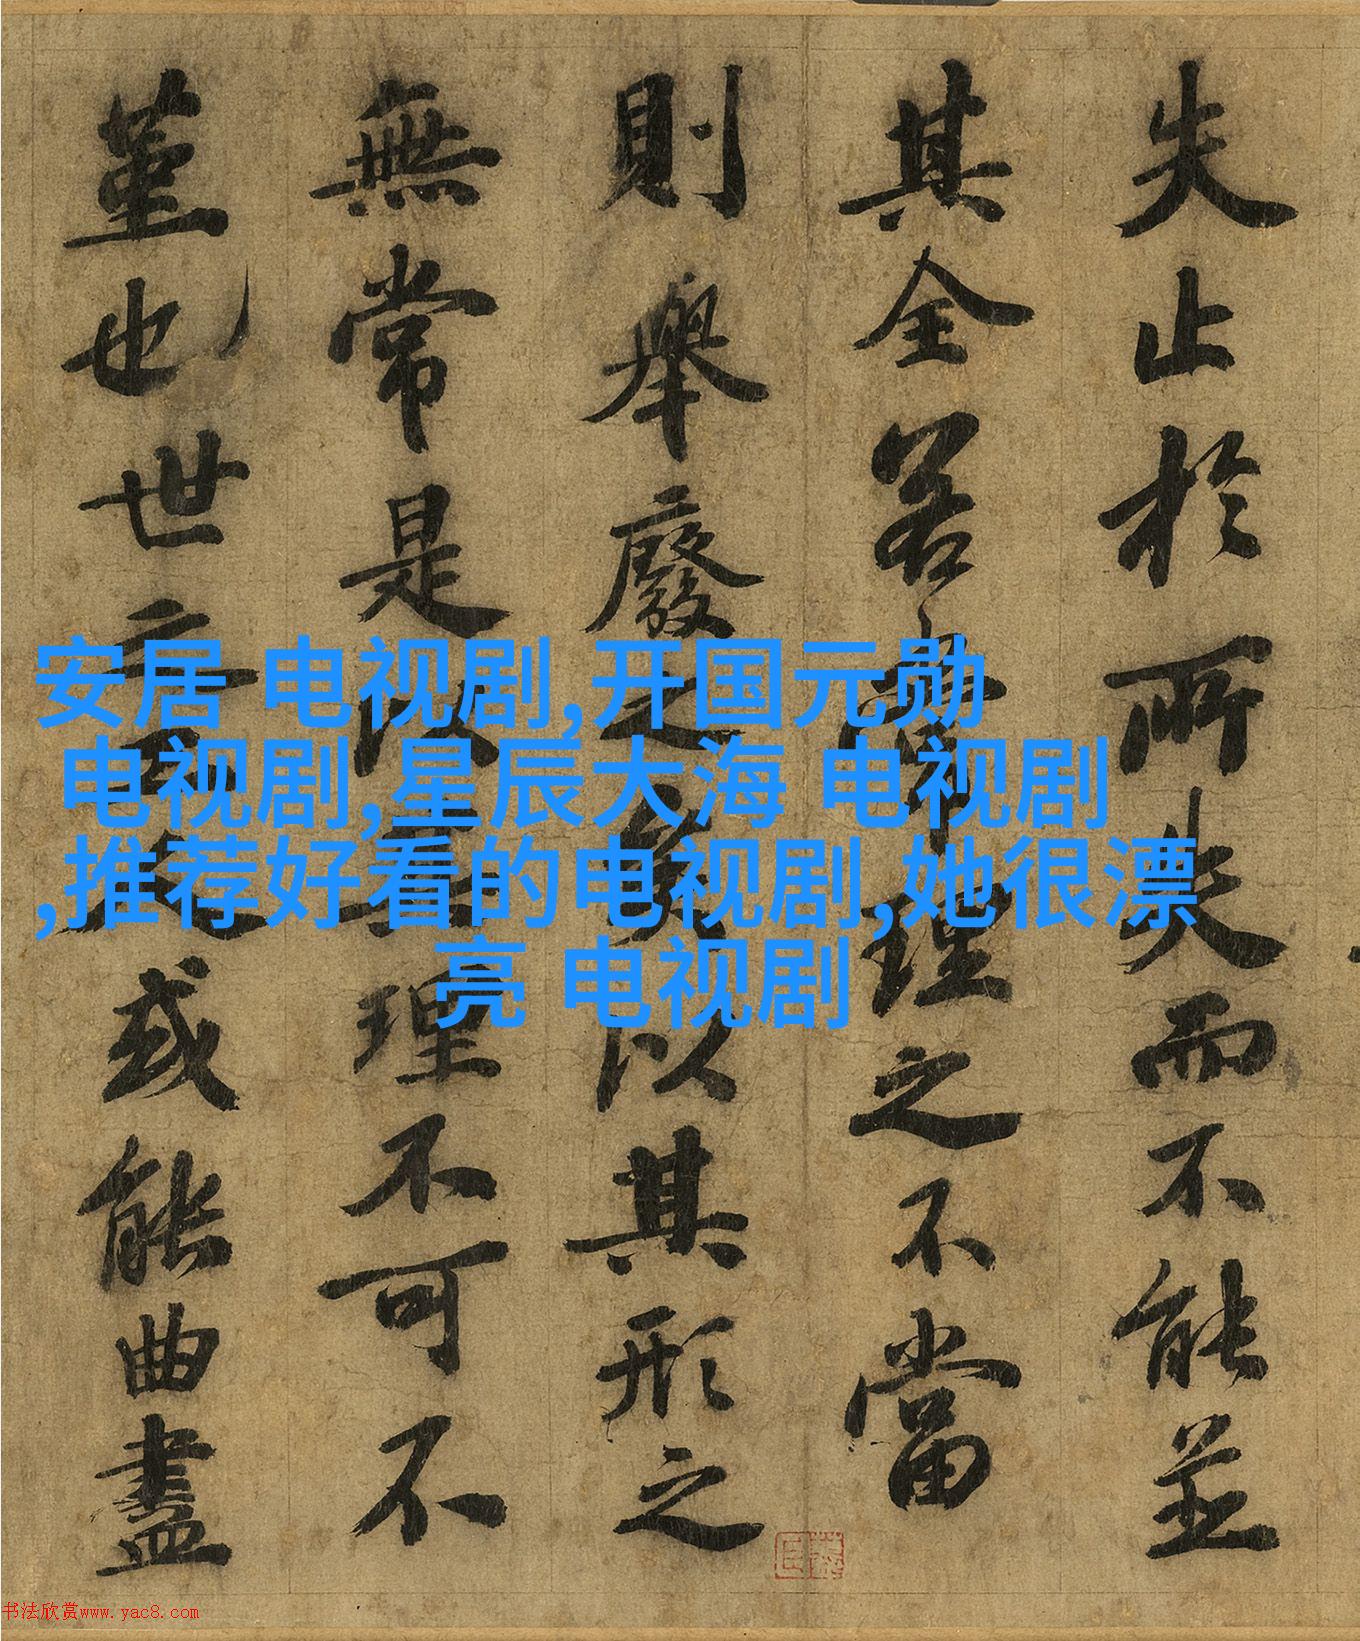 失止於所失而不能並
其全若常理之不當
則舉廢之矣以其形之
無常是以其理不可不
堇也世之工人或能曲盡
安居 电视剧,开国元勋
电视剧,星辰大海 电视剧
,推荐好看的电视剧,她很漂
亮 电视剧
书法欣赏www.yac8.com